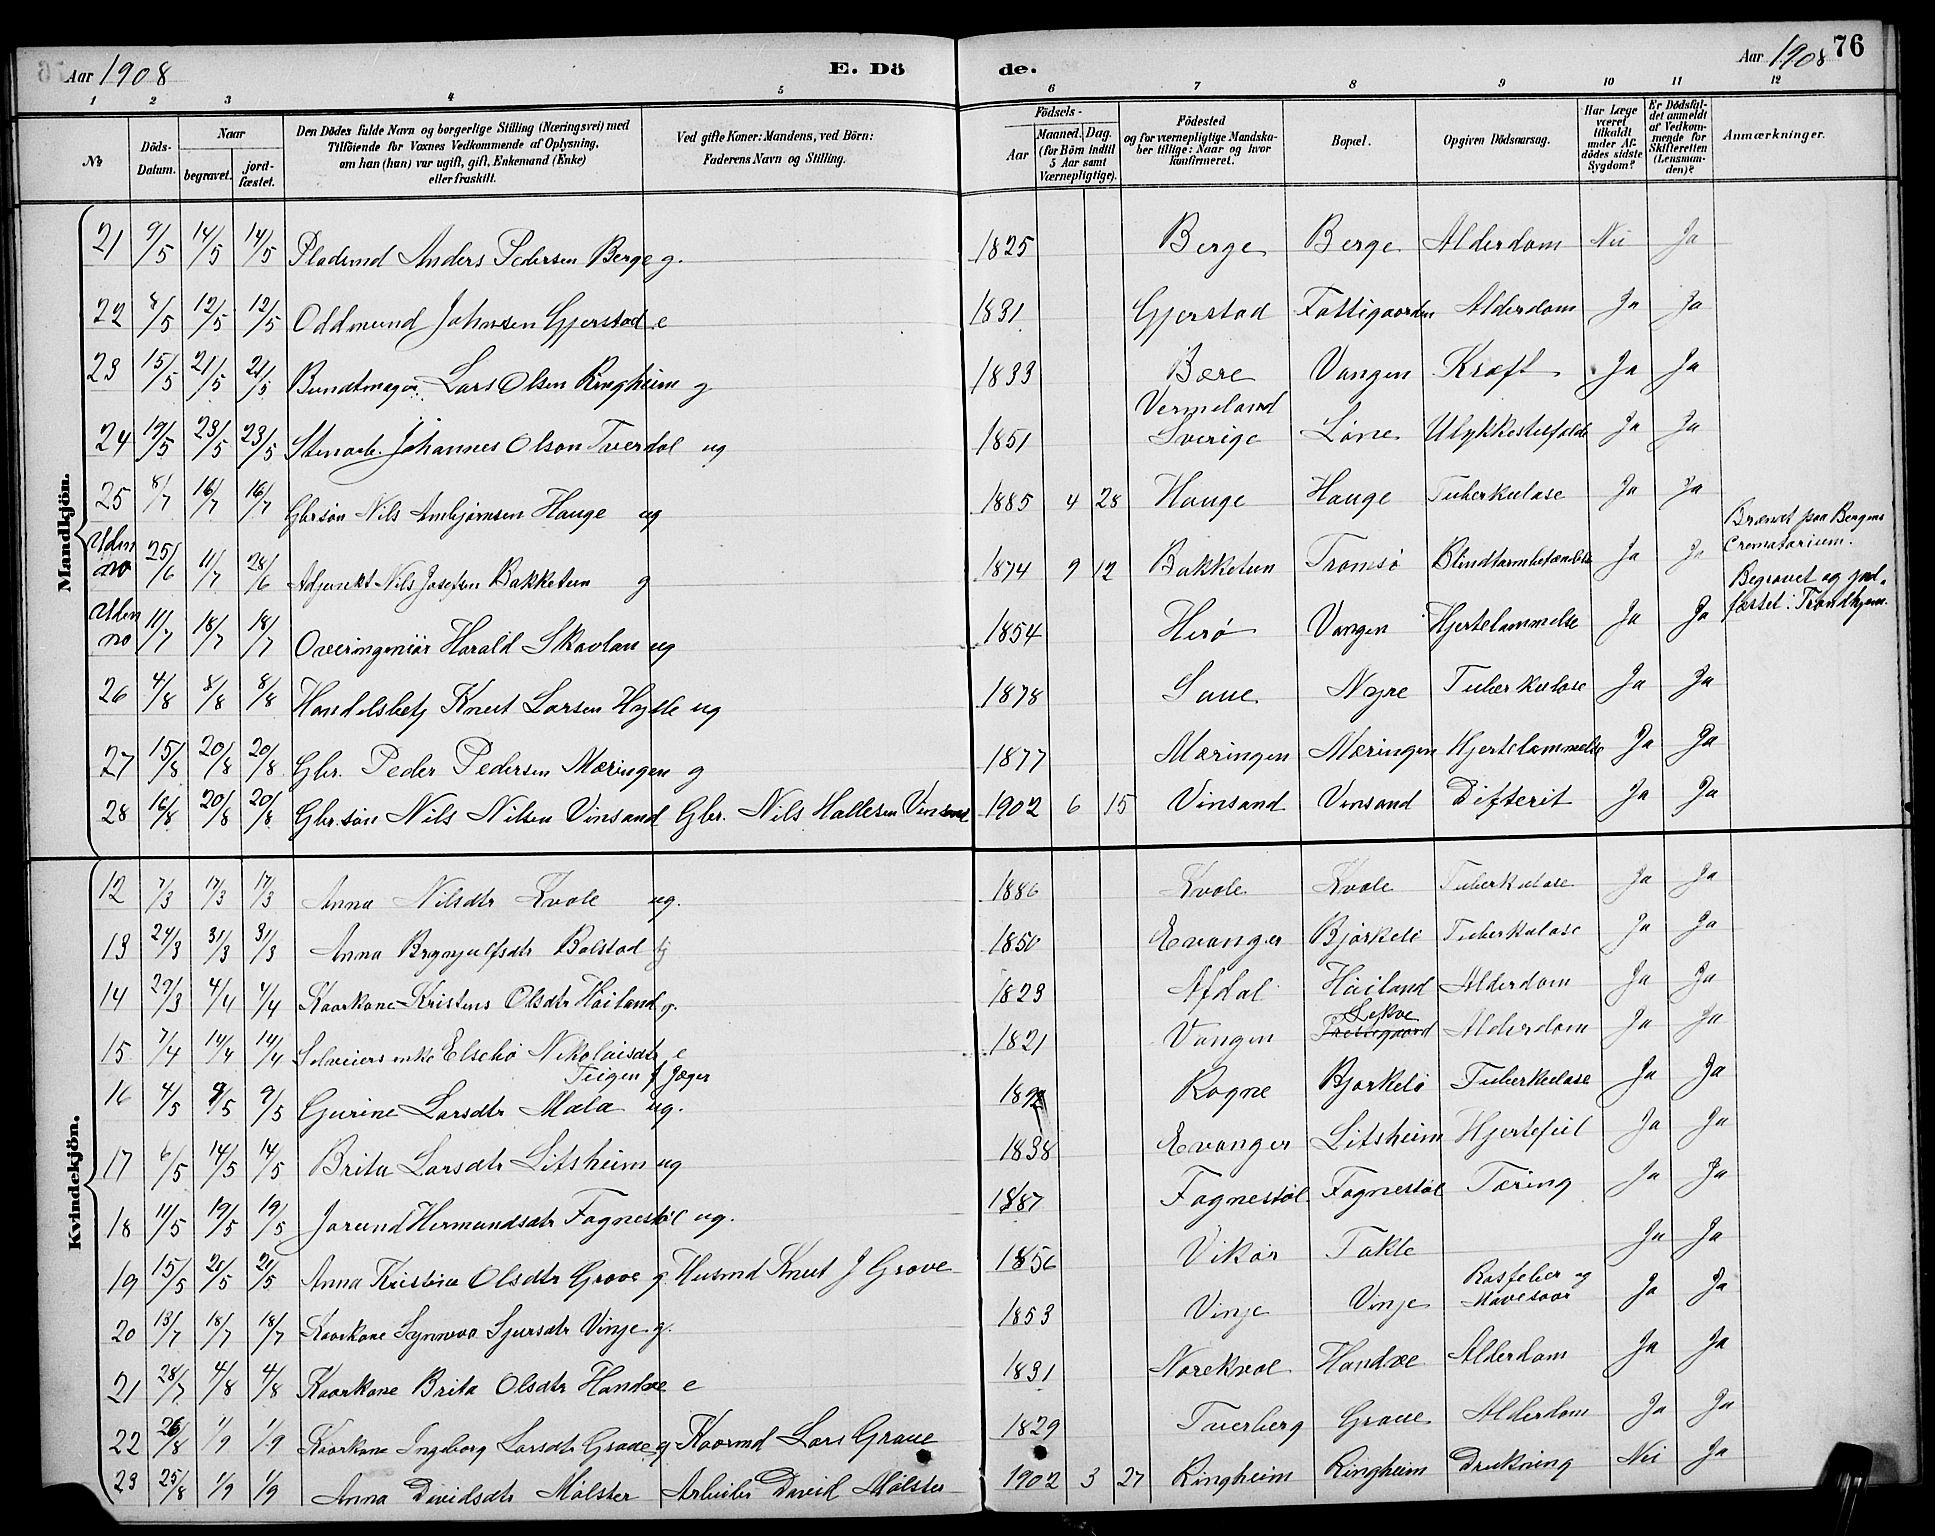 Aar 1908 E. Dö de. Aar 1908 76
1 2 3 4 5 6 7 8 9 10 11 12
No
Döds-Datum.
Naar
begravet. jord-fæstet.
Den Dödes fulde Navn og borgerlige Stilling (Næringsvei) med
Tilföiende for Voxnes Vedkommende af Oplysning,
om han (hun) var ugift, gift, Enkemand (Enke)
eller fraskilt.
Ved gifte Koner: Mandens, ved Börn:
Faderens Navn og Stilling.
Födsels-
Aar Maaned. Dag.
(for Börn indtil
5 Aar samt
Værnepligtige).
Födested
og for værnepligtige Mandska-
ber tillige: Naar og hvor
konfirmeret.
Bopæl.
Opgiven Dödsaarsag.
Har Læge
været
tilkaldt
under Af-
dödes sidste
Sygdom?
Er Dödsfal-
det anmeldt
af Vedkom-
mende for
Skifteretten
(Lensman-
den)?
Anmærkninger.
Mandkjön.
21 9/5 14/5 14/5 Pladsmd Anders Pedersen Berge g. 1825 Berge Berge Alderdom Nei Ja
22 8/5 12/5 12/5 Oddmund Johnsen Gjerstad e 1831 Gjerstad Fattigaarden Alderdom Ja Ja
23 15/5 21/5 21/5 Bundtmager Lars Olsen Ringheim g 1833 Bære Vangen Kræft Ja Ja
24 19/5 23/5 23/5 Stenarb. Johannes Olson Tverdal ug 1851 Vermeland Sverige Løne Ulykkestilfælde Ja Ja
25 8/7 16/7 16/7 Gbrsøn Nils Ambjørnsen Hauge ug 1885 4 28 Hauge Hauge Tuberkulose Ja Ja
Uden no 25/6 11/7 28/6 Adjunkt Nils Josefsen Bakketun g 1874 9 12 Bakketun Tromsø Ja Ja Brændt paa Bergens Crematorium.
Uden no 11/7 18/7 18/7 Overingeniør Harald Skavlan ug 1854 Herø Vangen Hjertelammelse Ja Ja Begravet og jord-fæstet i Trondhjem.
26 4/8 8/8 8/8 Handelsbetj Knut Larsen Hylle ug 1878 Saue Nyre Tuberkulose Ja Ja
27 15/8 20/8 20/8 Gbr. Peder Pedersen Mæringen g 1877 Mæringen Mæringen Hjertelammelse Ja Ja
28 16/8 20/8 20/8 Gbr.søn Nils Nilsen Vinsand Gbr. Nils Hallesen Vinsand 1902 6 15 Vinsand Vinsand Difterit Ja Ja
Kvindekjön.
12 7/3 17/3 17/3 Anna Nilsdtr Kvale ug. 1886 Kvale Kvale Tuberkulose Ja Ja
13 24/3 31/3 31/3 Anna Brynjulfsdtr Bolstad 1850 Evanger Bjørkeli Tuberkulose Ja Ja
14 29/3 4/4 4/4 Kaarkone Kristens Olsdtr Häiland g. 1823 Afdal Häiland Alderdom Ja Ja
15 7/4 14/4 14/4 enke Elsebø Nikolaisdtr e Teigen f Jæger 1821 Vangen Lekve Prestegaard Alderdom Ja Ja
16 4/5 9/5 9/5 Gurine Larsdtr Mæla ug. Rogne Bjørkeli Tuberkulose Ja Ja
17 6/5 14/5 14/5 Brita Larsdtr Litsheim ug 1838 Evanger Litsheim Hjertefeil Ja Ja
18 11/5 19/5 19/5 Jorund Hermundsdtr Fagnestøl ug. 1887 Fagnestøl Fagnestøl Tæring Ja Ja
19 15/5 20/5 20/5 Anna Kristine Olsdtr Grove g. Husmd Knut J Grove 1856 Vikør Takle Ja Ja
20 13/7 18/7 18/7 Kaarkone Synnva Sjursdtr Vinje g. 1853 Vinje Vinje Rosfeber og Mavesaar Ja Ja
21 28/7 4/8 4/8 Kaarkone Brita Olsdtr Handve e 1831 Norekval Handve Alderdom Ja Ja
22 26/8 1/9 1/9 Kaarkone Ingeborg Larsdtr Graue g Kaarmd Lars Graue 1829 Tverberg Graue Alderdom Ja Ja
23 25/8 1/9 1/9 Anna Davidsdtr Mølster Arbeider David Mølster 1902 3 27 Ringheim Ringheim Drukning Nei Ja